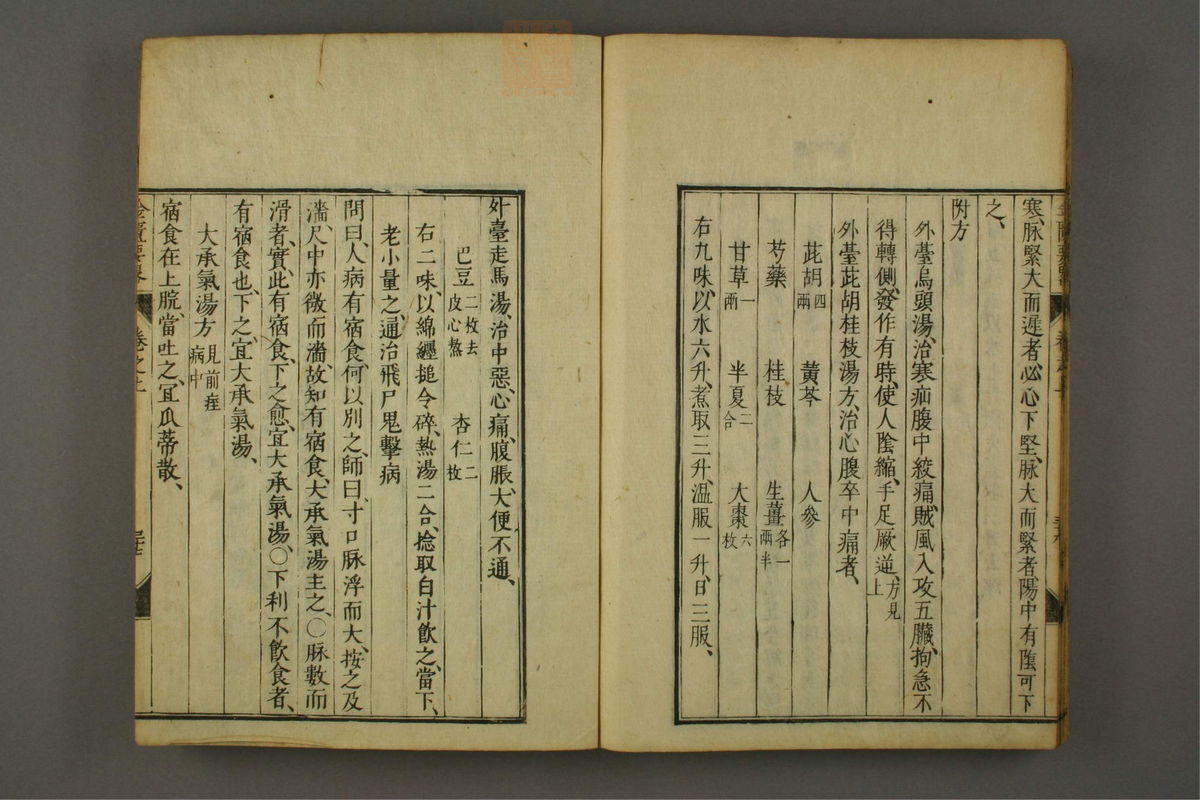 寒、脉緊大而遲者、必心下堅、脉大而緊者、陽中有陰可下
之、
附方
外臺烏頭湯、治寒疝腹中絞痛、賊風入攻五臟、拘急不
得轉側、發作有時、使人陰縮、手足厥逆、方見上
外臺茈胡桂枝湯方、治心腹卒中痛者、
茈胡四兩 黃芩 人參
芍藥 桂枝 生薑各一兩半
甘草一兩 半夏二合 大棗六枚
右九味、以水六升、煮取三升、温服一升、日三服、
外臺走馬湯、治中惡、心痛、腹脹、大便不通、
巴豆二枚去皮心熬 杏仁二枚
右二味、以綿纏搥令碎、熱湯二合、捻取白汁飲之、當下、
老小量之、通治飛尸鬼擊病
問曰、人病有宿食、何以別之、師曰、寸口脉浮而大、按之及
濇、尺中亦微而濇、故知有宿食、大承氣湯主之、○脉數而
滑者、實、此有宿食、下之愈、宜大承氣湯、○下利不飲食者、
有宿食也、下之、宜大承氣湯、
大承氣湯方見前痓病中
宿食在上脘、當吐之、宜瓜蒂散、
金匱要畧 卷之上